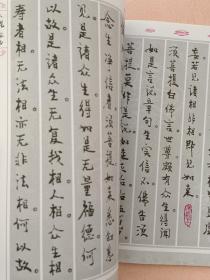 妄若见诸相非相即见如来
须菩提白佛言世尊颇有众生得闻
如是言说章句生实信不佛告须
菩提莫作是说如来灭
念生净信者须菩提如来悉知悉
见是诸众生得如是无量福德何
以故是诸众生无复我相人相众生相
寿者相无法相亦无非法相何以故